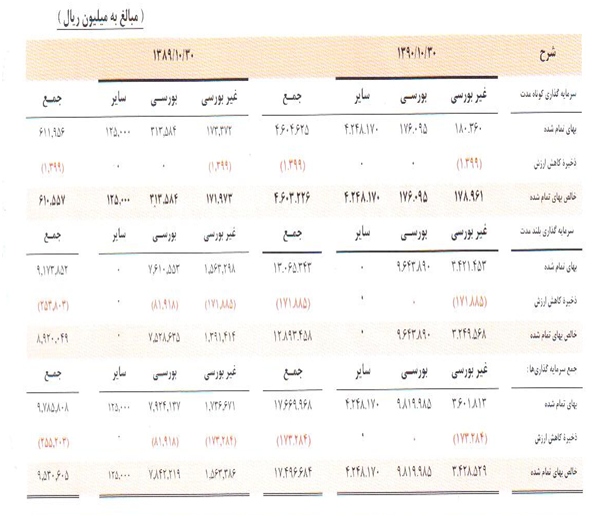 ( مبالغ به میلیون ریال )
شرح ۱۳۹۰/۱۰/۳۰ ۱۳۸۹/۱۰/۳۰
سرمایه گذاری کوتاه مدت غیر بورسی بورسی سایر جمع غیر بورسی بورسی سایر جمع
بهای تمام شده ۱۸۰.۳۶۰ ۱۷۶.۰۹۵ ۴.۲۴۸.۱۷۰ ۴.۶۰۴.۶۲۵ ۱۷۳,۳۷۲ ۳۱۳,۵۸۴ ۱۲۵,۰۰۰ ۶۱۱,۹۵۶
ذخیره کاهش ارزش (۱.۳۹۹) ۰ ۰ (۱.۳۹۹) (۱,۳۹۹) ۰ ۰ (۱,۳۹۹)
خالص بهای تمام شده ۱۷۸.۹۶۱ ۱۷۶.۰۹۵ ۴.۲۴۸.۱۷۰ ۴.۶۰۳.۲۲۶ ۱۷۱,۹۷۳ ۳۱۳,۵۸۴ ۱۲۵,۰۰۰ ۶۱۰,۵۵۷
سرمایه گذاری بلند مدت غیر بورسی بورسی سایر جمع غیر بورسی بورسی سایر جمع
بهای تمام شده ۳.۴۲۱.۴۵۳ ۹.۶۴۳.۸۹۰ ۰ ۱۳.۰۶۵.۳۴۳ ۱,۵۶۳,۲۹۸ ۷,۶۱۰,۵۵۳ ۰ ۹,۱۷۳,۸۵۲
ذخیره کاهش ارزش (۱۷۱.۸۸۵) ۰ ۰ (۱۷۱.۸۸۵) (۱۷۱,۸۸۵) (۸۱,۹۱۸) ۰ (۲۵۳,۸۰۳)
خالص بهای تمام شده ۳.۲۴۹.۵۶۸ ۹.۶۴۳.۸۹۰ ۰ ۱۲.۸۹۳.۴۵۸ ۱,۳۹۱,۴۱۴ ۷,۵۲۸,۶۳۵ ۰ ۸,۹۲۰,۰۴۹
جمع سرمایه گذاری‌ها : غیر بورسی بورسی سایر جمع غیر بورسی بورسی سایر جمع
بهای تمام شده ۳.۶۰۱.۸۱۳ ۹.۸۱۹.۹۸۵ ۴.۲۴۸.۱۷۰ ۱۷.۶۶۹.۹۶۸ ۱,۷۳۶,۶۷۱ ۷,۹۲۴,۱۳۷ ۱۲۵,۰۰۰ ۹,۷۸۵,۸۰۸
ذخیره کاهش ارزش (۱۷۳.۲۸۴) ۰ ۰ (۱۷۳.۲۸۴) (۱۷۳,۲۸۴) (۸۱,۹۱۸) ۰ (۲۵۵,۲۰۳)
خالص بهای تمام شده ۳.۴۲۸.۵۲۹ ۹.۸۱۹.۹۸۵ ۴.۲۴۸.۱۷۰ ۱۷.۴۹۶.۶۸۴ ۱,۵۶۳,۳۸۶ ۷,۸۴۲,۲۱۹ ۱۲۵,۰۰۰ ۹,۵۳۰,۶۰۵